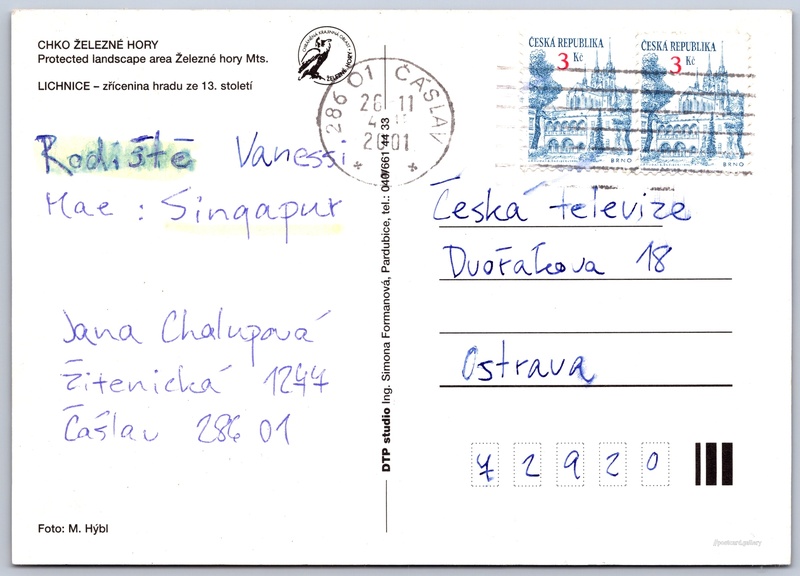 CHKO ŽELEZNÉ HORY
Protected landscape area Železné hory Mts.
LICHNICE – zřícenina hradu ze 13. století
ŽELEZNÉ HORY
286 01 ČÁSLAV
26 11
2001
ČESKÁ REPUBLIKA
3 Kč
BRNO
ČESKÁ REPUBLIKA
3 Kč
BRNO
Rodiště Vanessi
Mae : Singapur
Jana Chalupová
Žitenická 1247
Čáslav 286 01
Foto: M. Hýbl
DTP studio Ing. Simona Formanová, Pardubice, tel.: 040/661 44 33
Česká televize
Dvořákova 18
Ostrava
7 2 9 2 0